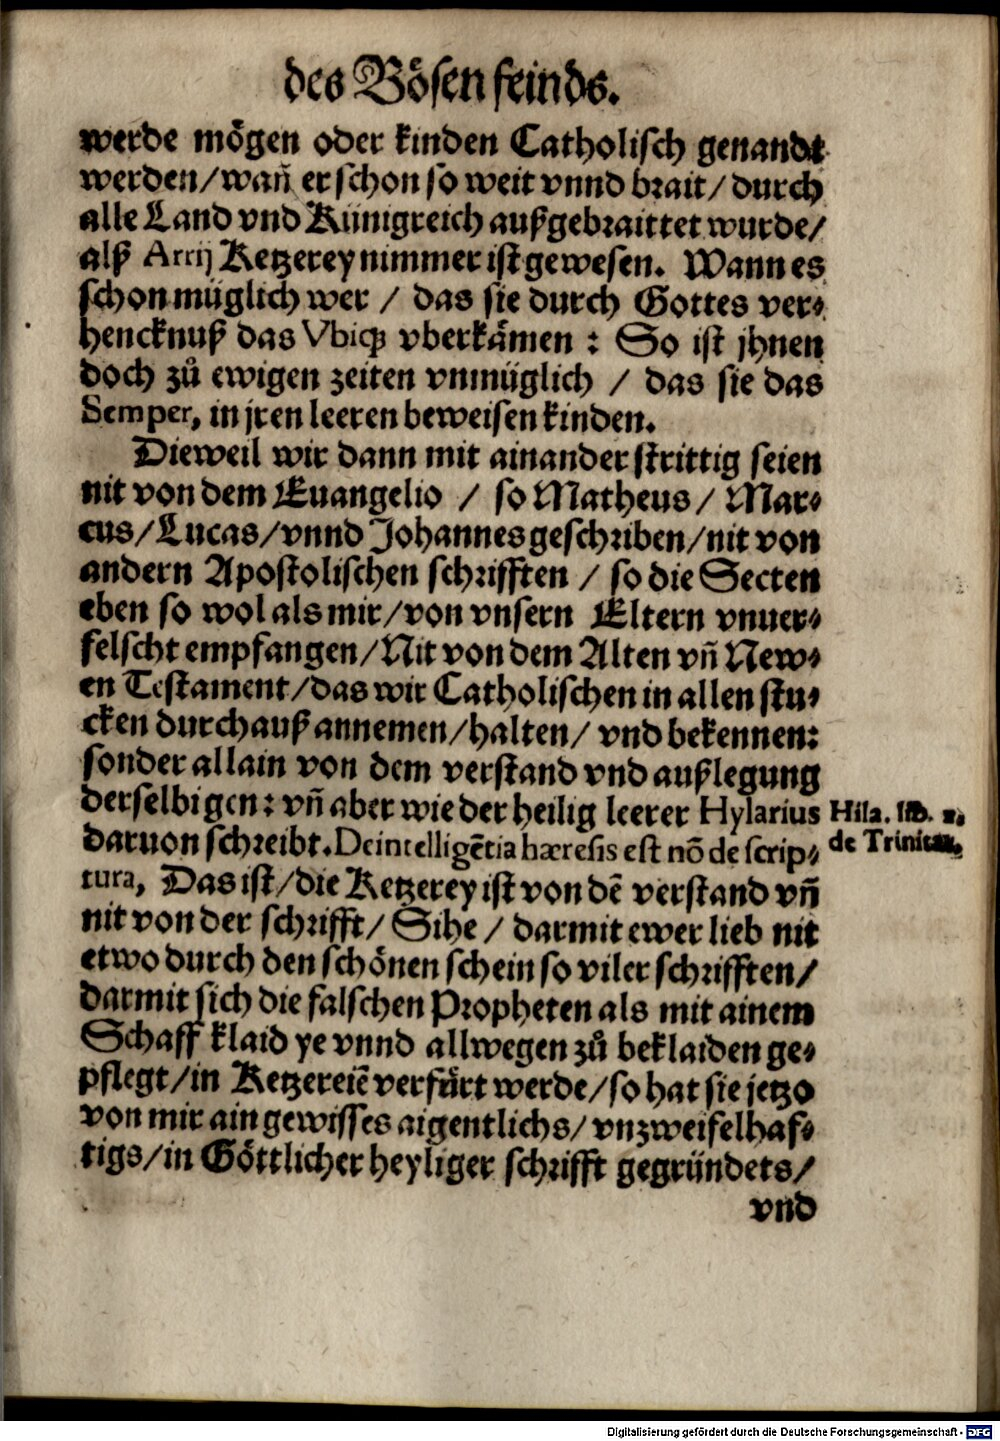 des Bösen feinds.
werde mögen oder kinden Catholisch genandt
werden/wañ er schon so weit vnnd brait/durch
alle Land vnd Künigreich außgebraittet wurde/
alß Arrij Ketzerey nimmer ist gewesen. Wann es
schon müglich wer / das sie durch Gottes ver-
hencknuß das Vbiqꝫ vberkämen : So ist jhnen
doch zů ewigen zeiten vnmüglich / das sie das
Semper, in jren leeren beweisen kinden.
Dieweil wir dann mit ainander strittig seien
nit von dem Euangelio / so Matheus/ Mar-
cus/Lucas/vnnd Johannes geschriben/nit von
andern Apostolischen schrifften / so die Secten
eben so wol als mir/von vnsern Eltern vnuer-
felscht empfangen/Nit von dem Alten vñ New-
en Testament/das wir Catholischen in allen stu-
cken durchauß annemen/halten/ vnd bekennen:
sonder allain von dem verstand vnd außlegung
derselbigen: vñ aber wie der heilig leerer Hylarius
Hila. lib. 2.
daruon schreibt. De intelligẽtia hæresis est nõ de scrip-
de Trinitat.
tura, Das ist/die Ketzerey ist von dẽ verstand vñ
nit von der schrifft/ Sihe / darmit ewer lieb nit
etwo durch den schönen schein so viler schrifften/
darmit sich die falschen Propheten als mit ainem
Schaff klaid ye vnnd allwegen zů beklaiden ge-
pflegt/in Ketzereiẽ verfürt werde/so hat sie jetzo
von mir ain gewisses aigentlichs/ vnzweifelhaf-
tigs/in Göttlicher heyliger schrifft gegründets/
vnd
Digitalisierung gefördert durch die Deutsche Forschungsgemeinschaft - DFG